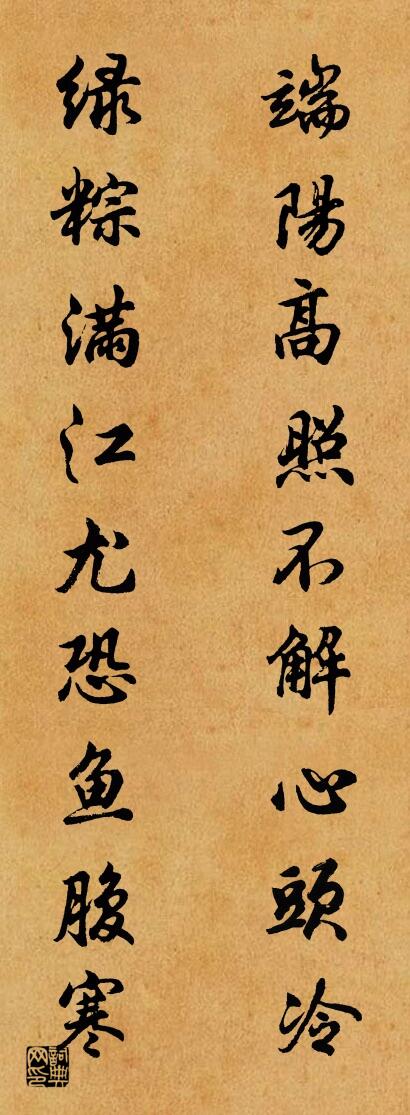 端陽高照不解心頭冷
绿粽满江尤恐鱼腹寒
詞典网印